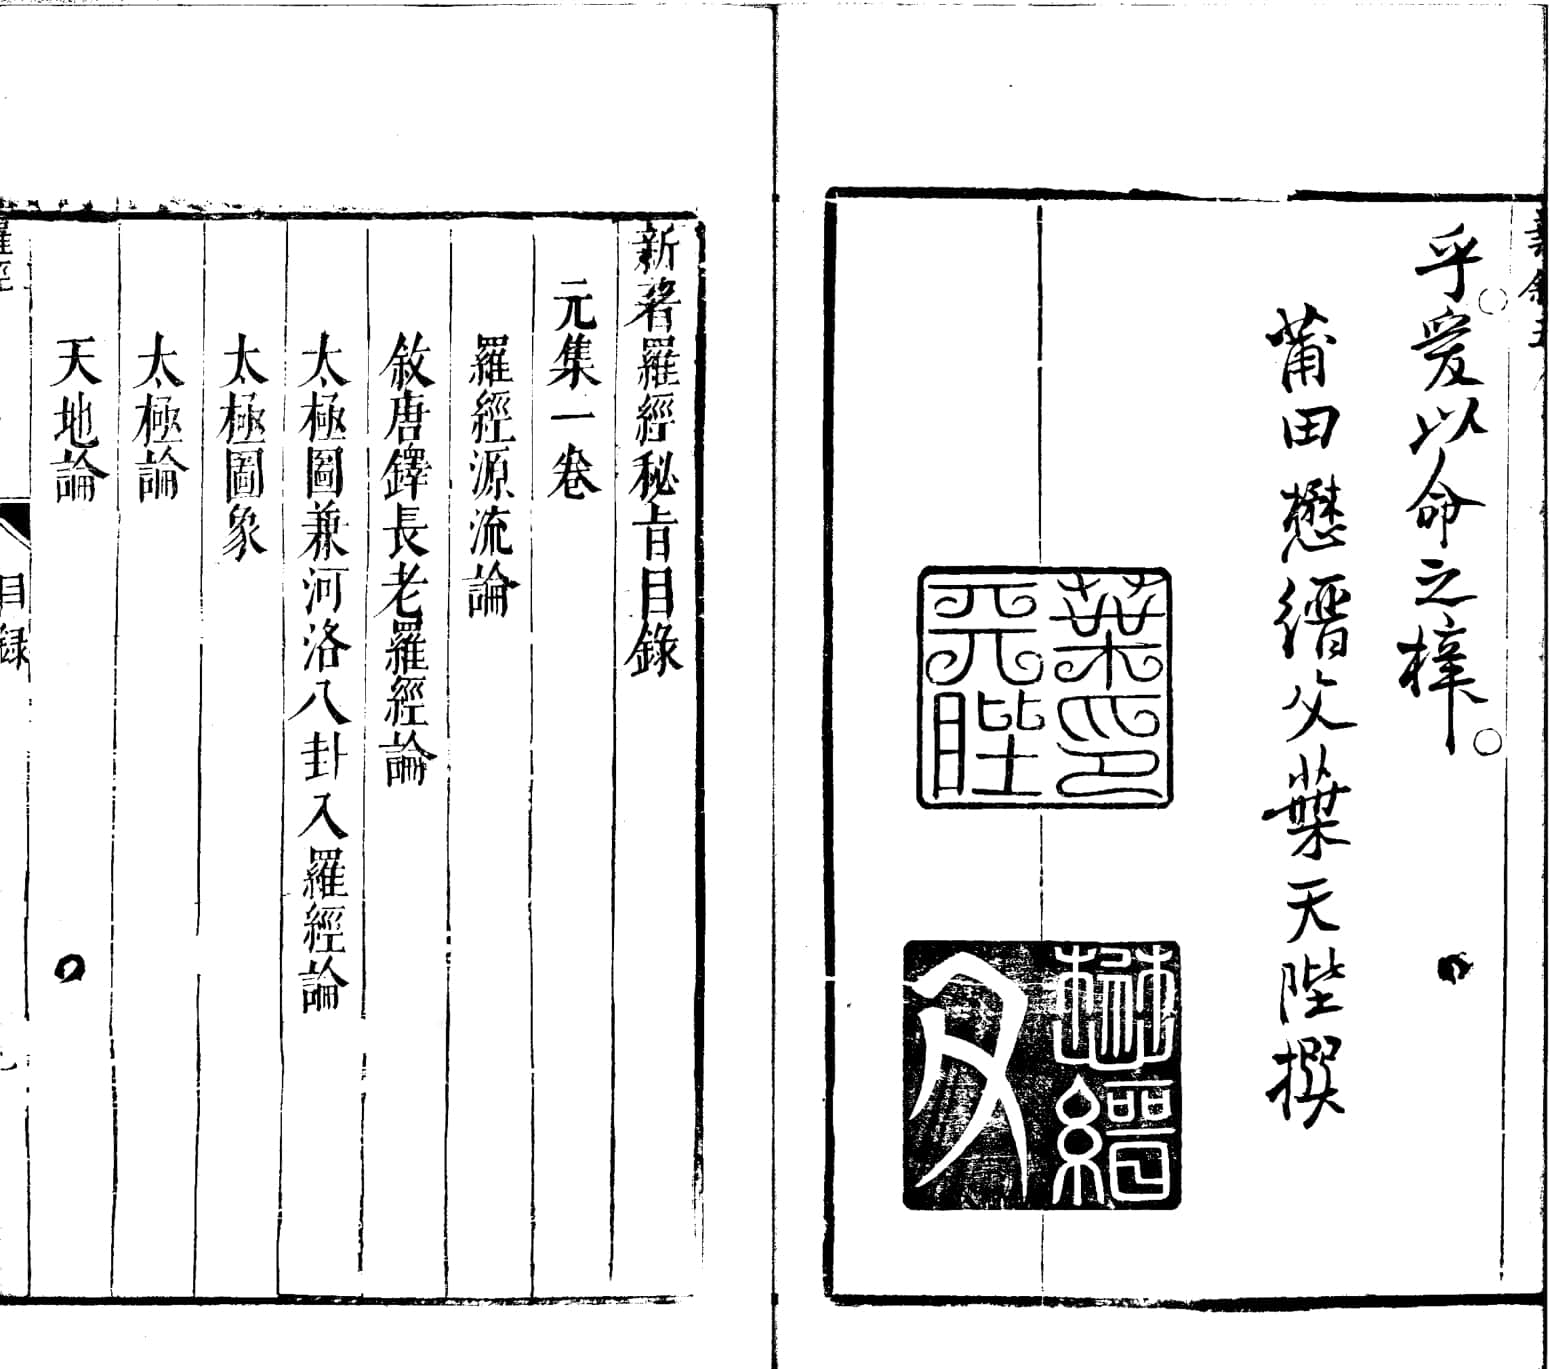 乎爰以命之梓
莆田懋縉父葉天陛撰
葉印天陛
懋縉父
新著羅經秘旨目錄
元集一卷
羅經源流論
敘唐鐸長老羅經論
太極圖兼河洛八卦入羅經論
太極圖象
太極論
天地論
羅經
目録